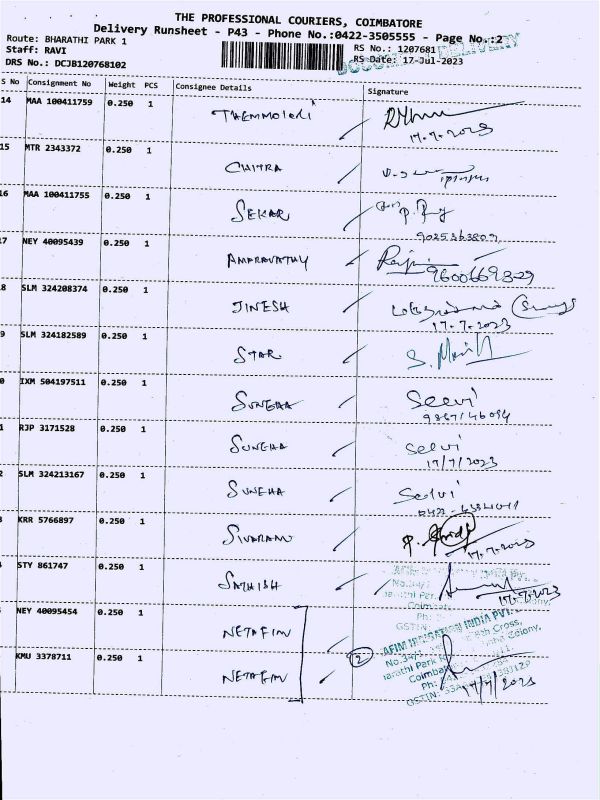 THE PROFESSIONAL COURIERS, COIMBATORE
Delivery Runsheet - P43 - Phone No.:0422-3505555 - Page No.:2
Route: BHARATHI PARK 1
Staff: RAVI
DRS No.: DCJB120768102
RS No.: 1207681
RS Date: 17-Jul-2023
DELIVERY
S No Consignment No Weight PCS Consignee Details Signature
14 MAA 100411759 0.250 1
17-7-2023
15 MTR 2343372 0.250 1 CHITRA
16 MAA 100411755 0.250 1 SEKAR
9025363809
7 NEY 40095439 0.250 1
9600669329
8 SLM 324208374 0.250 1 JINESH
17-7-2023
9 SLM 324182589 0.250 1 STAR
0 IXM 504197511 0.250 1 Selvi
1 RJP 3171528 0.250 1 SUNEHA Selvi
17/7/2023
2 SLM 324213167 0.250 1 SUNEHA Selvi
3 KRR 5766897 0.250 1 SIVARAM
17-7-2023
STY 861747 0.250 1 SATHISH
17-7-2023
NEY 40095454 0.250 1 NETAFIM
KMU 3378711 0.250 1 NETAFIM
2
17/7/2023